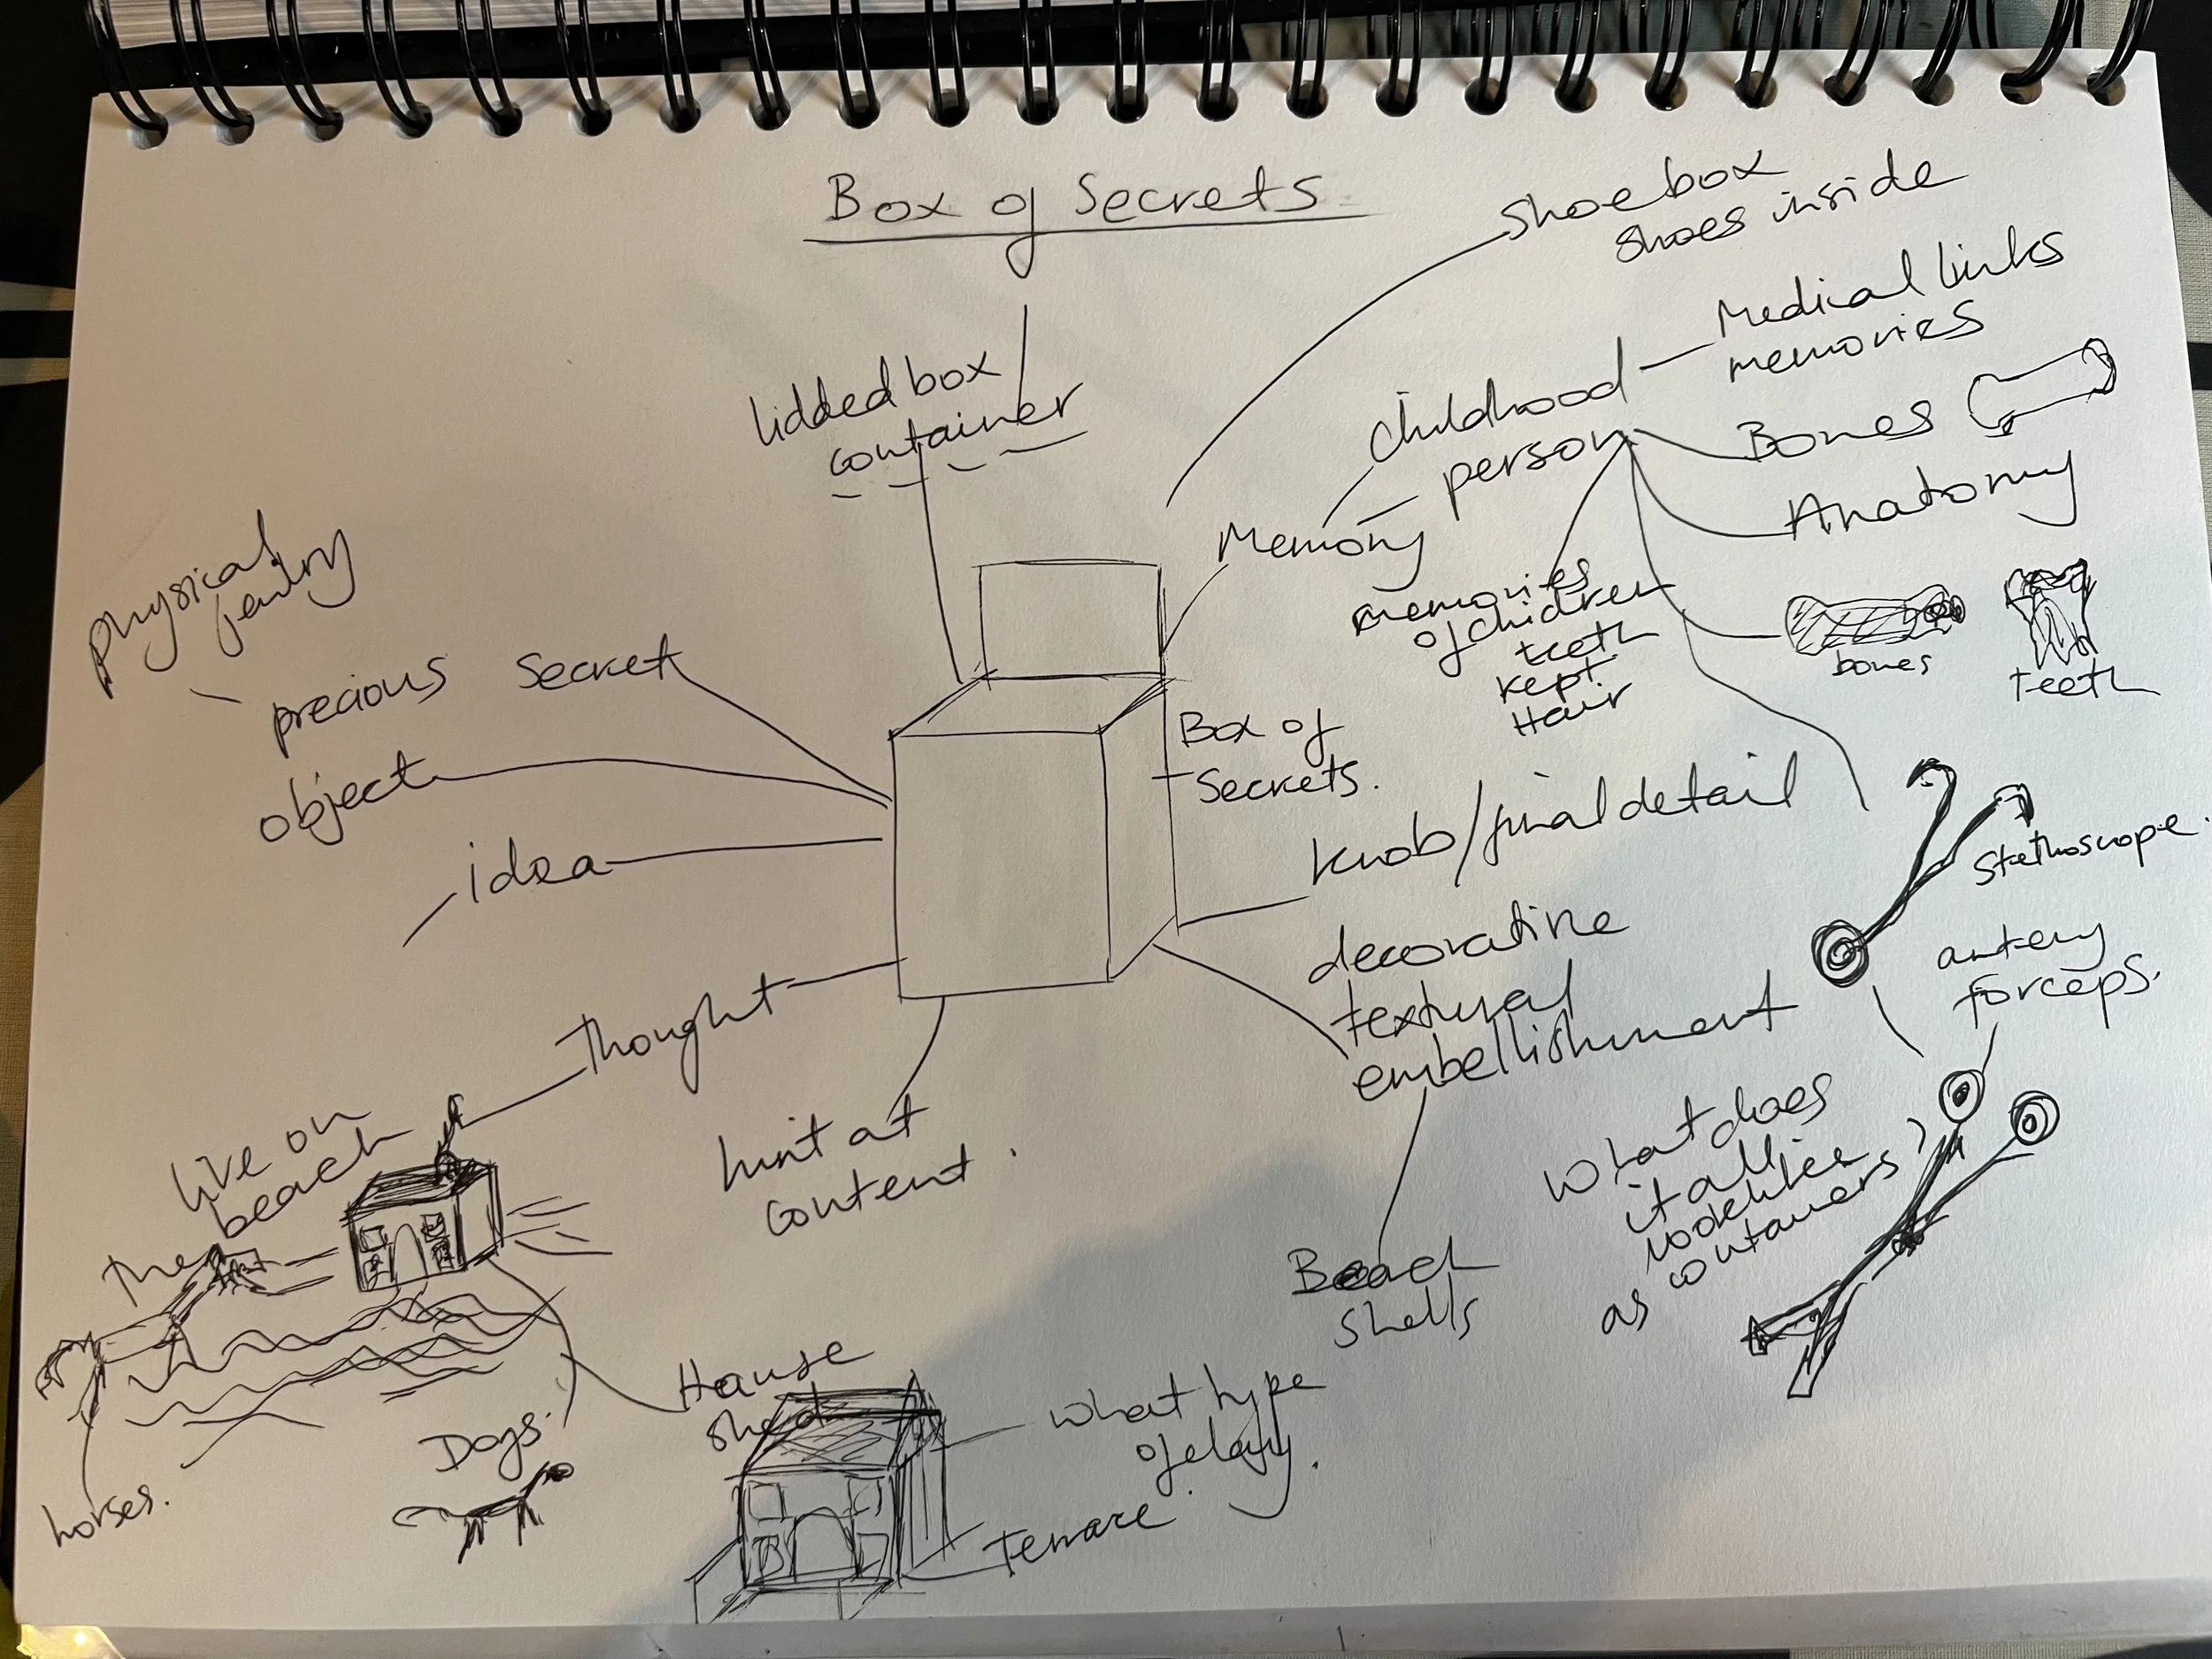 Box of Secrets
Shoebox
Shoes inside
lidded box
container
Childhood
Medical links
memories
person
Bones
Anatomy
Memory
memories
of children
teeth
kept
Hair
bones
teeth
physical
precious
Secret
object
idea
thought
Box of
Secrets.
knob/final detail
decorative
textural
embellishment
Stethoscope.
artery
forceps.
What does
it all
look like
as containers?
hint at
content.
live on
beach
horses.
Dogs.
House
shed
what type
of clay.
terrace.
Beach
shells
1.